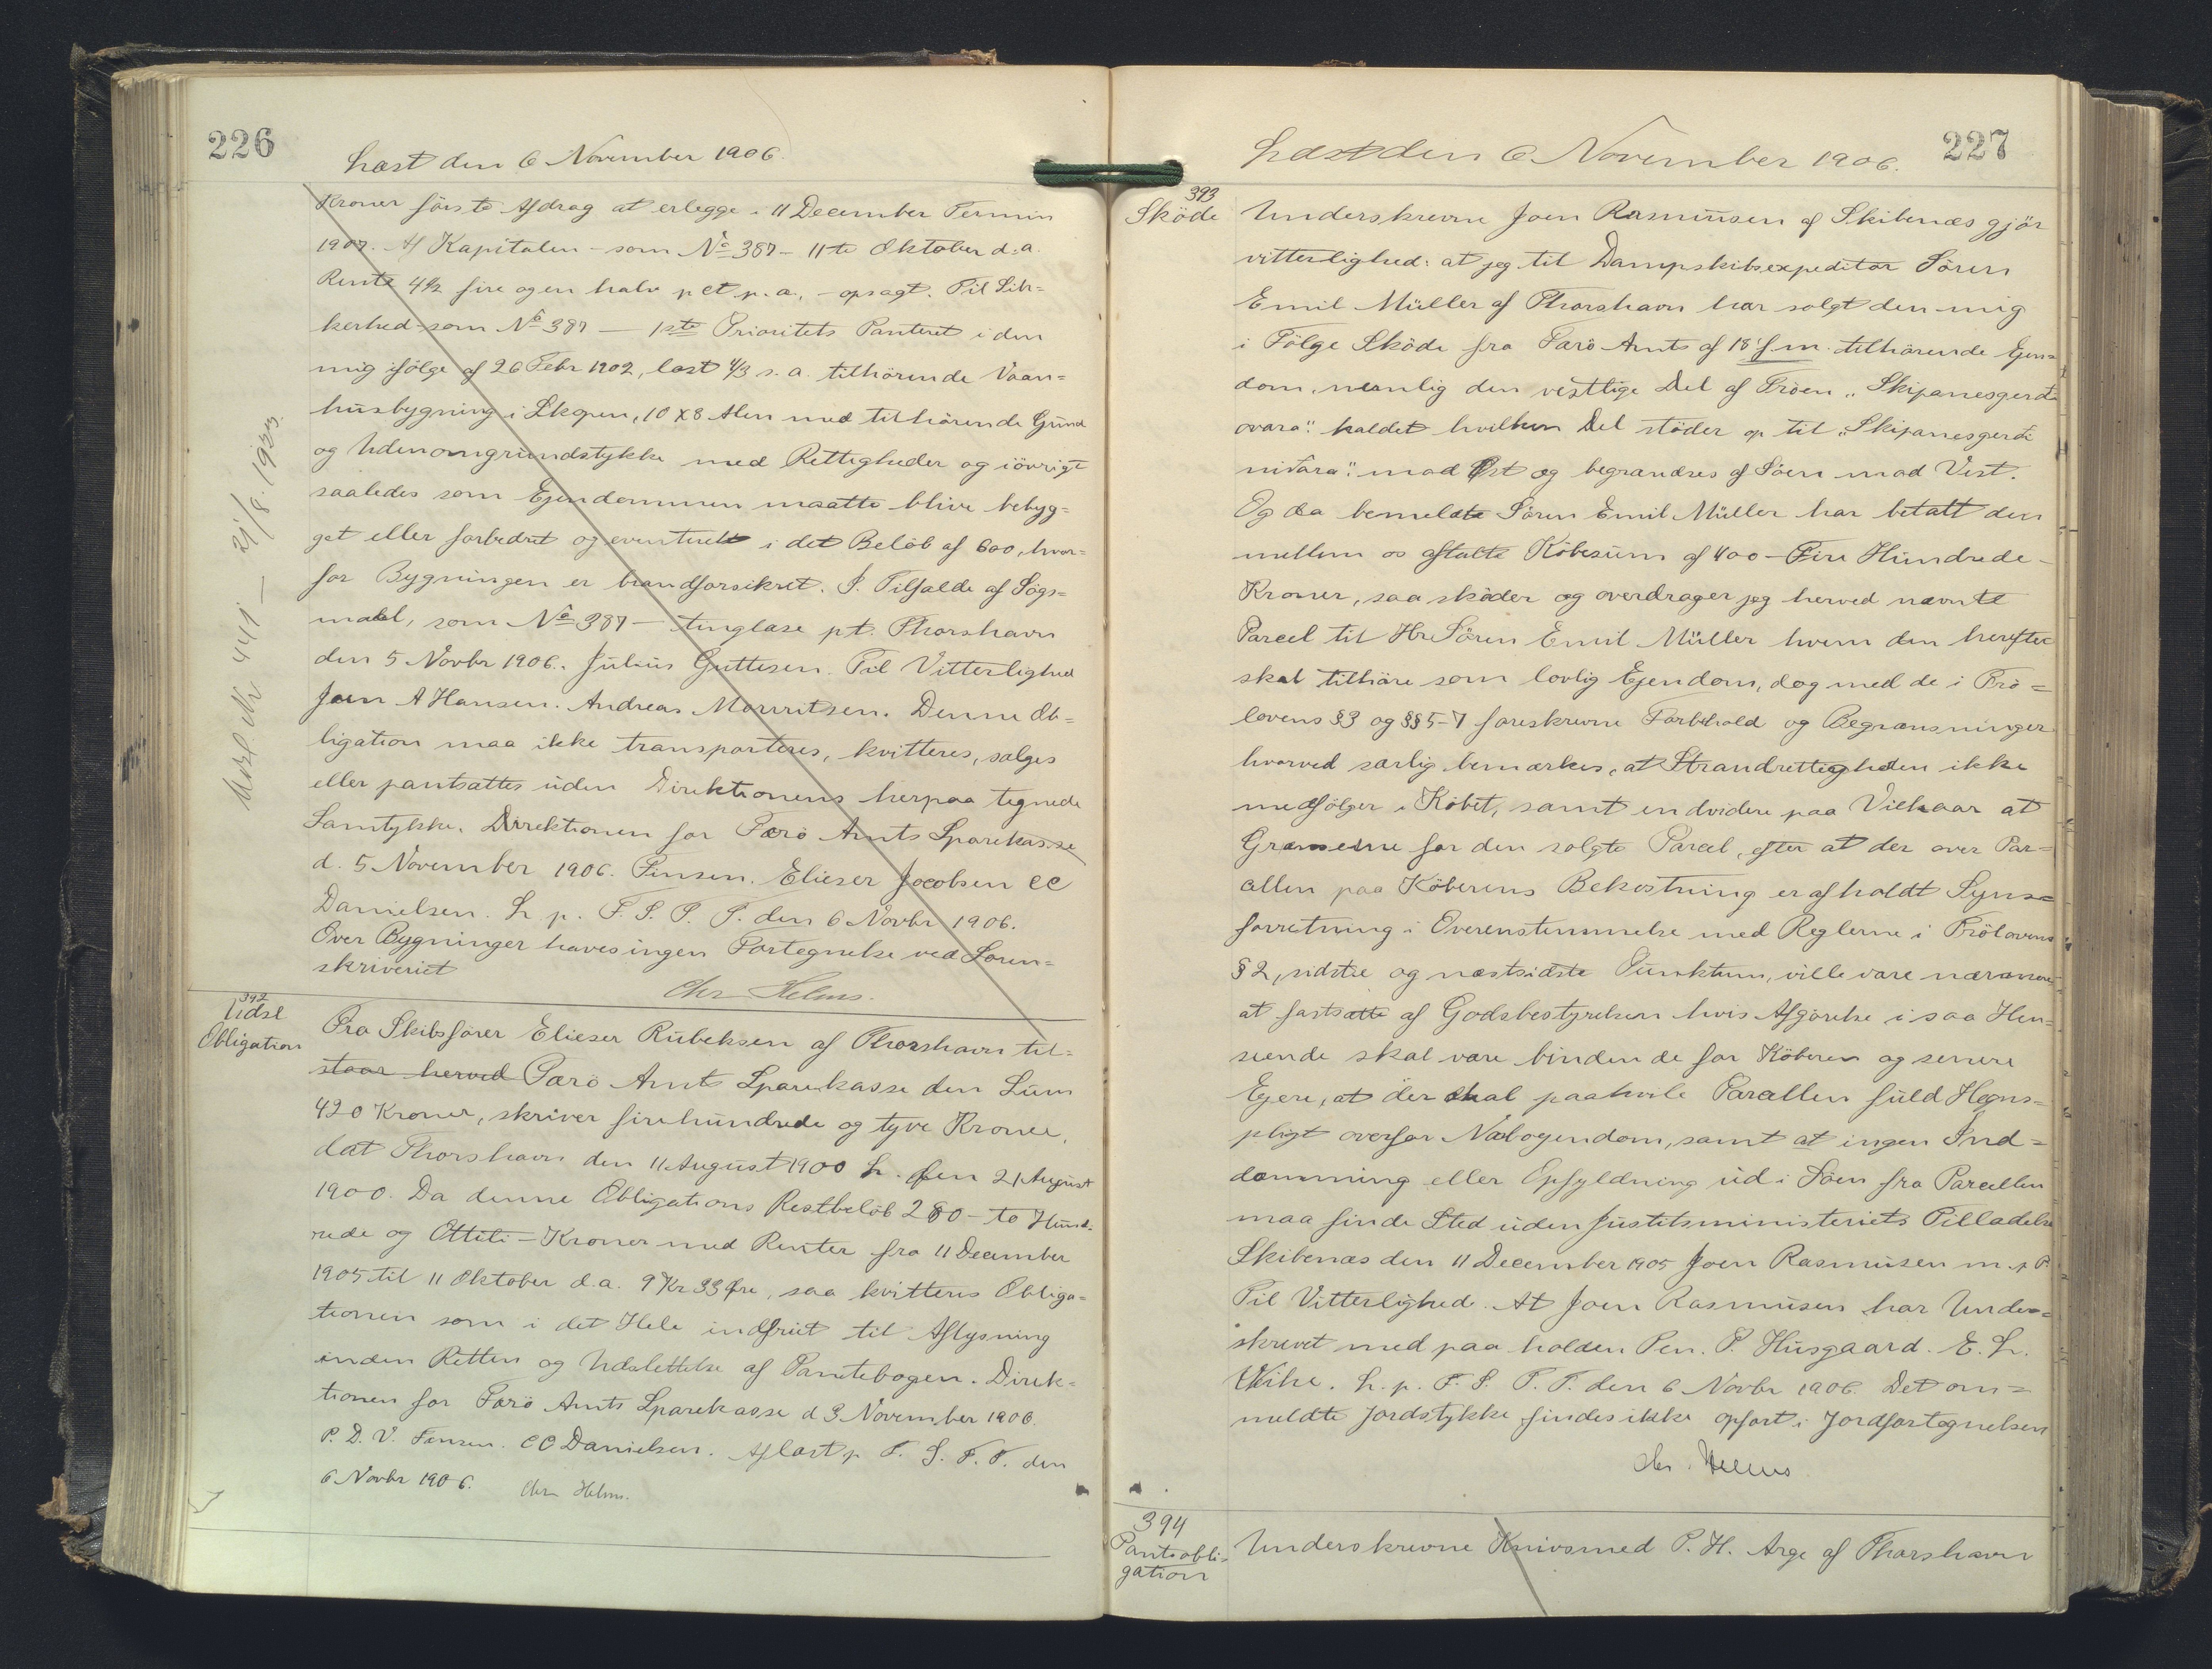 226
Læst den 6 November 1906.
Kroner förste Afdrag at erlegge i 11 December Termin
1907. Af Kapitalen - som No 387 - 11te Oktober d.a.
Rente 4½ fire og en halv pCt p.a., - opsagt. Til Sik-
kerhed - som No 387 - 1ste Prioritets Panteret i den
mig ifölge af 26 Febr 1902, læst 4/3 s.a. tilhörende Vaan-
husbygning i Skopen, 10 x 8 Alen med tilhörende Grund
og Udenomgrundstykke med Rettigheder og iövrigt
saaledes som Ejendommen maatte blive bebyg-
get eller forbedret og eventuelt i det Belöb af 600, hvor-
for Bygningen er brandforsikret. I Tilfælde af Sögs-
maal, som No 387 - tinglæse pt. Thorshavn
den 5 Novbr 1906. Julius Guttesen. Til Vitterlighed
Joen A Hansen. Andreas Mouritsen. Denne Ob-
ligation maa ikke transporteres, kvitteres, sælges
eller pantsættes uden Direktionens herpaa tegnede
Samtykke. Direktionen for Færö Amts Sparekasse
d. 5 November 1906. Finsen. Elieser Jacobsen CC
Danielsen. L. p. F. S. T. T. den 6 Novbr 1906.
Over Bygninger haves ingen Fortegnelse ved Soren-
skriveriet
Chr Helms.
Udsl. Nr 441 - 21/8. 1923.
392
Udsl
Obligation
Fra Skibsförer Elieser Rubeksen af Thorshavn til-
staar herved Færö Amts Sparekasse den Sum
420 Kroner, skriver firehundrede og tyve Kroner,
dat Thorshavn den 11 August 1900 L. den 21 August
1900. Da denne Obligations Restbelöb 280 - to Hund-
rede og Otteti - Kroner med Renter fra 11 December
1905 til 11 Oktober d.a. 9 Kr 33 Öre, saa kvitteres Obliga-
tionen som i det Hele indfriet til Aflysning
inden Retten og Udslettelse af Pantebogen. Direk-
tionen for Færö Amts Sparekasse d 3 November 1906.
P. D. V. Finsen. CC Danielsen. Aflæst p. F. S. T. T. den
6 Novbr 1906. Chr Helms.
227
Læst den 6 November 1906.
393
Sköde
Underskrevne Joen Rasmusen af Skibenæs gjör
vitterlighed: at jeg til Dampskibsexpeditör Sören
Emil Müller af Thorshavn har solgt den mig
i Fölge Sköde fra Færö Amt af 18 f.m. tilhörende Ejen-
dom, nemlig den vestlige Del af Tröen "Skipanesgerdi
ovara" kaldet hvilken Del stöder op til "Skipanesgerdi
nidara" mod Öst og begrændses af Söen mod Vest.
Og da bemeldte Sören Emil Müller har betalt den
mellem os aftalte Köbesum af 400 - Fire Hundrede -
Kroner, saa sköder og overdrager jeg herved nævnte
Parcel til Hr Sören Emil Müller hvem den herefter
skal tilhöre som lovlig Ejendom, dog med de i Trö-
lovens §3 og §§5-7 foreskrevne Forbehold og Begrænsninger
hvorved særlig bemærkes, at Strandrettigheden ikke
medfölger i Köbet, samt endvidere paa Vilkaar at
Grænserne for den solgte Parcel, efter at der over Par-
cellen paa Köberens Bekostning er afholdt Syns-
forretning i Overenstemmelse med Reglerne i Trölovens
§2, sidste og næstsidste Punktum, ville være nærmere
at fastsætte af Godsbestyrelsen hvis Afgörelse i saa Hen-
seende skal være bindende for Köberen og senere
Ejere, at der skal paahvile Parcellen fuld Hegns-
pligt overfor Naboejendom, samt at ingen Ind-
dæmning eller Opfyldning ud i Söen fra Parcellen
maa finde Sted uden Justitsministeriets Tilladelse
Skibenæs den 11 December 1905 Joen Rasmusen m. p. P.
Til Vitterlighed. At Joen Rasmusen har Under-
skrevet med paa holden Pen. P. Husgaard. E. L.
Wihe. L. p. F. S. T. T. den 6 Novbr 1906. Det om-
meldte Jordstykke findes ikke opfört i Jordfortegnelsen
Chr. Helms
394
Panteobli-
gation
Underskrevne Knivsmed P. H. Arge af Thorshavn